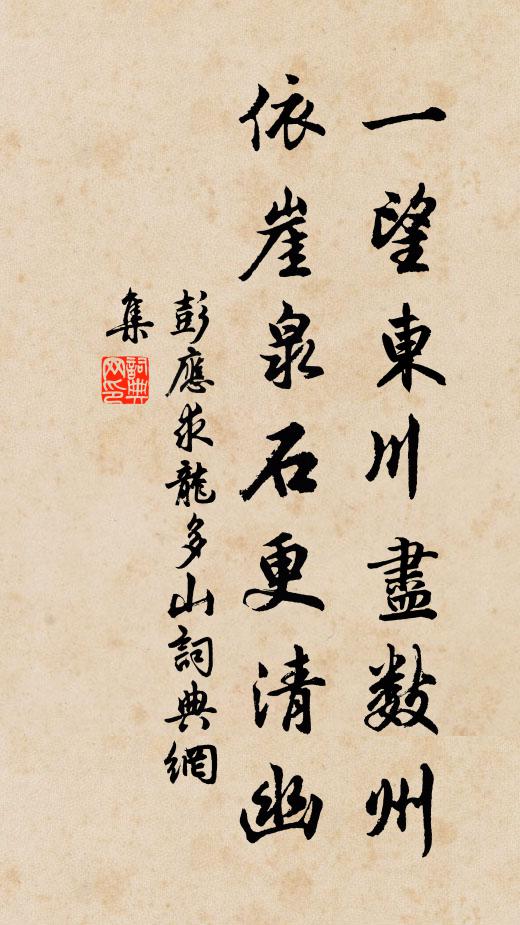 一望東川盡數州
依崖泉石更清幽
彭應求龍多山詞典網
集
詞典網印